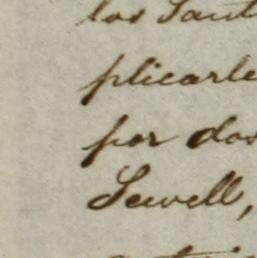 los Sant
plicarle
por dos
Sewell,